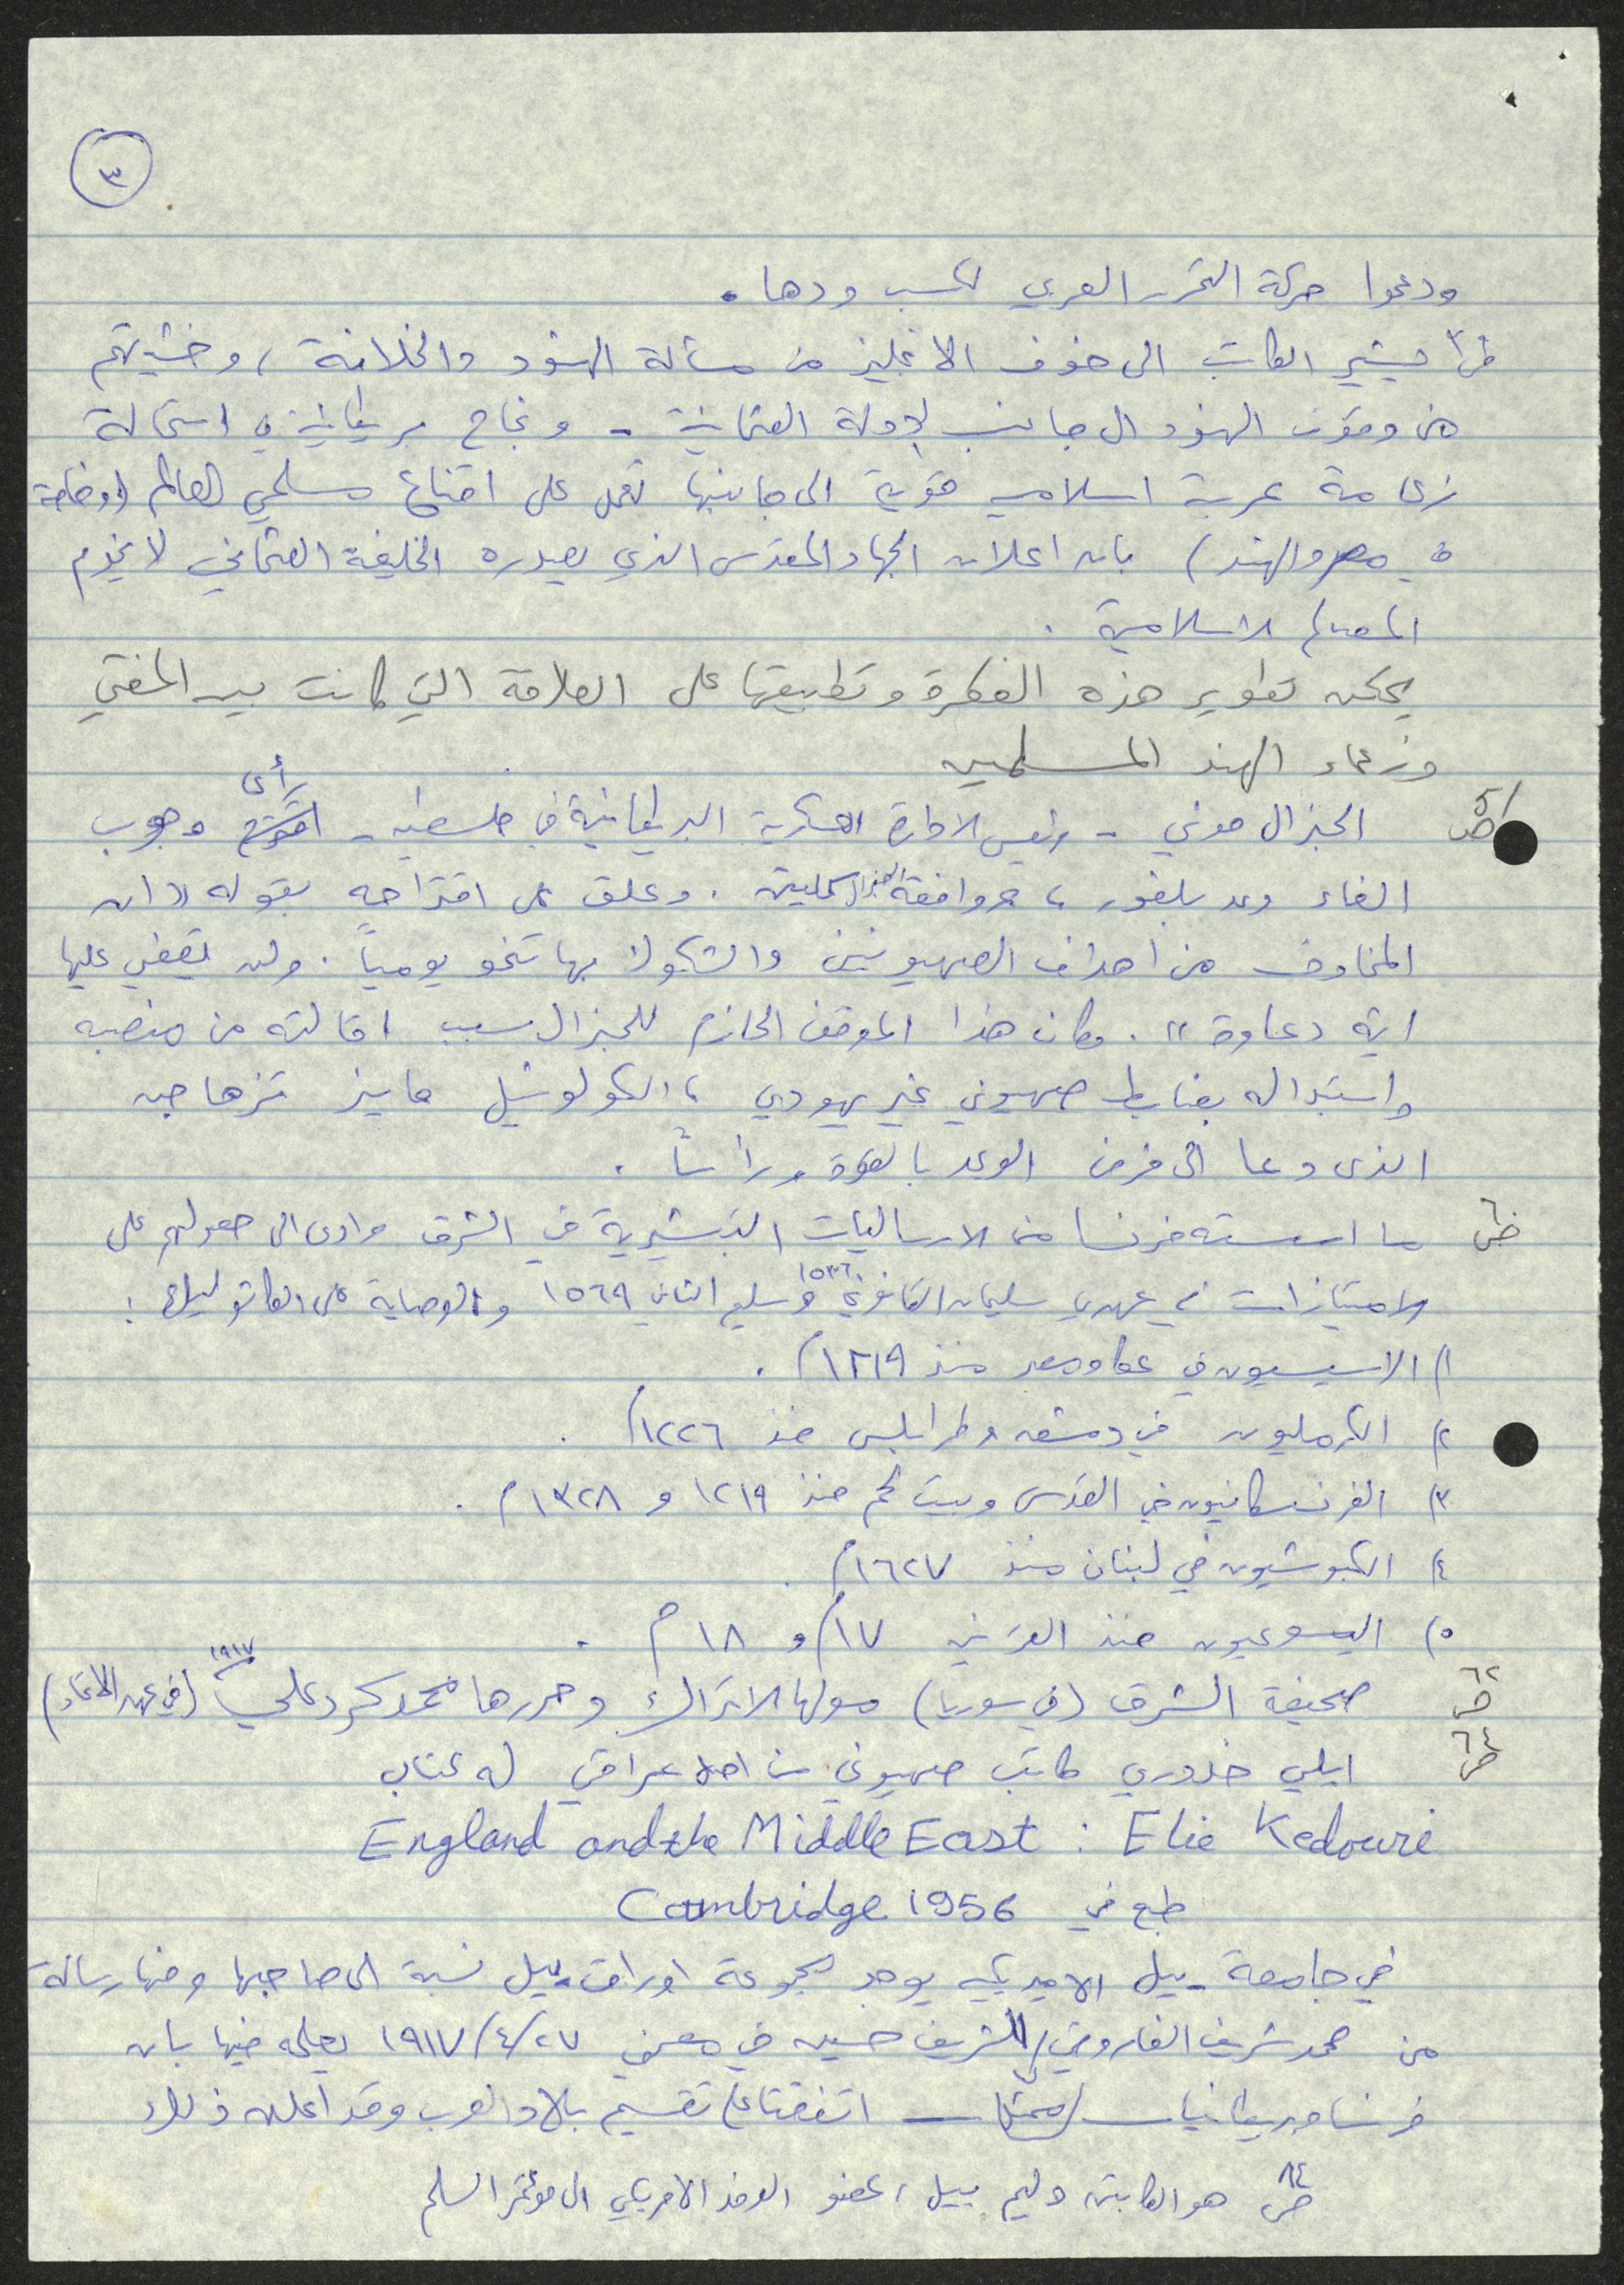 ٣
ودعموا حركة التحرر العربي لكسب ودها.
يشير الكاتب الى خوف الانجليز من مسألة الهنود والخلافة، وخشيتهم
من وقوف الهنود الى جانب الدولة العثمانية - ونجاح بريطانيا في استمالة
زعامة عربية اسلامية قوية الى جانبها تعمل على اقناع مسلمي العالم (وخاصة
في مصر والهند) بان اعلان الجهاد المقدس الذي يصدره الخليفة العثماني لا يخدم
المصالح الاسلامية.
يمكن تطوير هذه الفكرة وتطبيقها على العلاقة التي كانت بين المفتي
وزعماء الهند المسلمين
الجنرال موني - رئيس الادارة العسكرية البريطانية في فلسطين - رأى وجوب
الغاء وعد بلفور، بموافقة الجنرال كليتن. وعلق على اقتراحه بقوله "ان
المخاوف من اهداف الصهيونيين والشكوك بها تنمو يومياً. ولن يقضي عليها
اية دعاوة". وكان هذا الموقف الحازم للجنرال سبب اقالته من منصبه
واستبداله بضابط صهيوني غير يهودي، الكولونيل ماينر تزهاجن
الذي دعا الى فرض الوعد بالقوة ورأساً.
ص٦ ما اسسته فرنسا من الارساليات التبشيرية في الشرق وادى الى حصولهم على
الامتيازات في عهدي سليمان القانوني ١٥٣٦ وسليم الثاني ١٥٦٩ والوصاية على الكاثوليك:
١) الاسيسيون في عكا ومصر منذ ١٢١٩م.
٢) الكرمليون في دمشق وطرابلس منذ ١٢٢٦م.
٣) الفرنسكانيون في القدس وبيت لحم منذ ١٢١٩ و ١٣٢٨م.
٤) الكبوشيون في لبنان منذ ١٦٢٧م.
٥) اليسوعيون منذ القرنين ١٧م و ١٨م.
ص٦٢ صحيفة الشرق (في سوريا) مولها الاتراك وحررها محمد كرد علي ١٩١٧ (في عهد الاتحاد)
ص٦٤ ايلي خدوري كاتب صهيوني من اصل عراقي له كتاب
England and the Middle East : Elie Kedouri
طبع في Cambridge 1956
في جامعة ييل الاميركية يوجد مجموعة اوراق ييل نسبة الى صاحبها ومنها رسالة
من محمد شريف الفاروقي للشريف حسين في ٢٧/٤/١٩١٧ يعلمه فيها بان
فرنسا وبريطانيا اتفقتا على تقسيم بلاد العرب وقد اعلن ذلك
ص٨٤ هو الكابتن وليم ييل، عضو الوفد الامريكي الى مؤتمر السلم